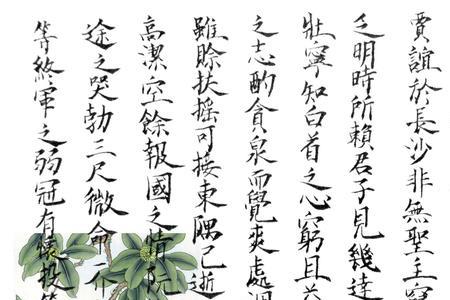 賈誼於長沙非無聖主
乏明時所賴君子見幾達
壯寧知白首之心窮且
之志酌貪泉而覺爽處
雖賒扶搖可接東隅已逝
高潔空餘報國之情阮
途之哭勃三尺微命一介
等終軍之弱冠有懷投